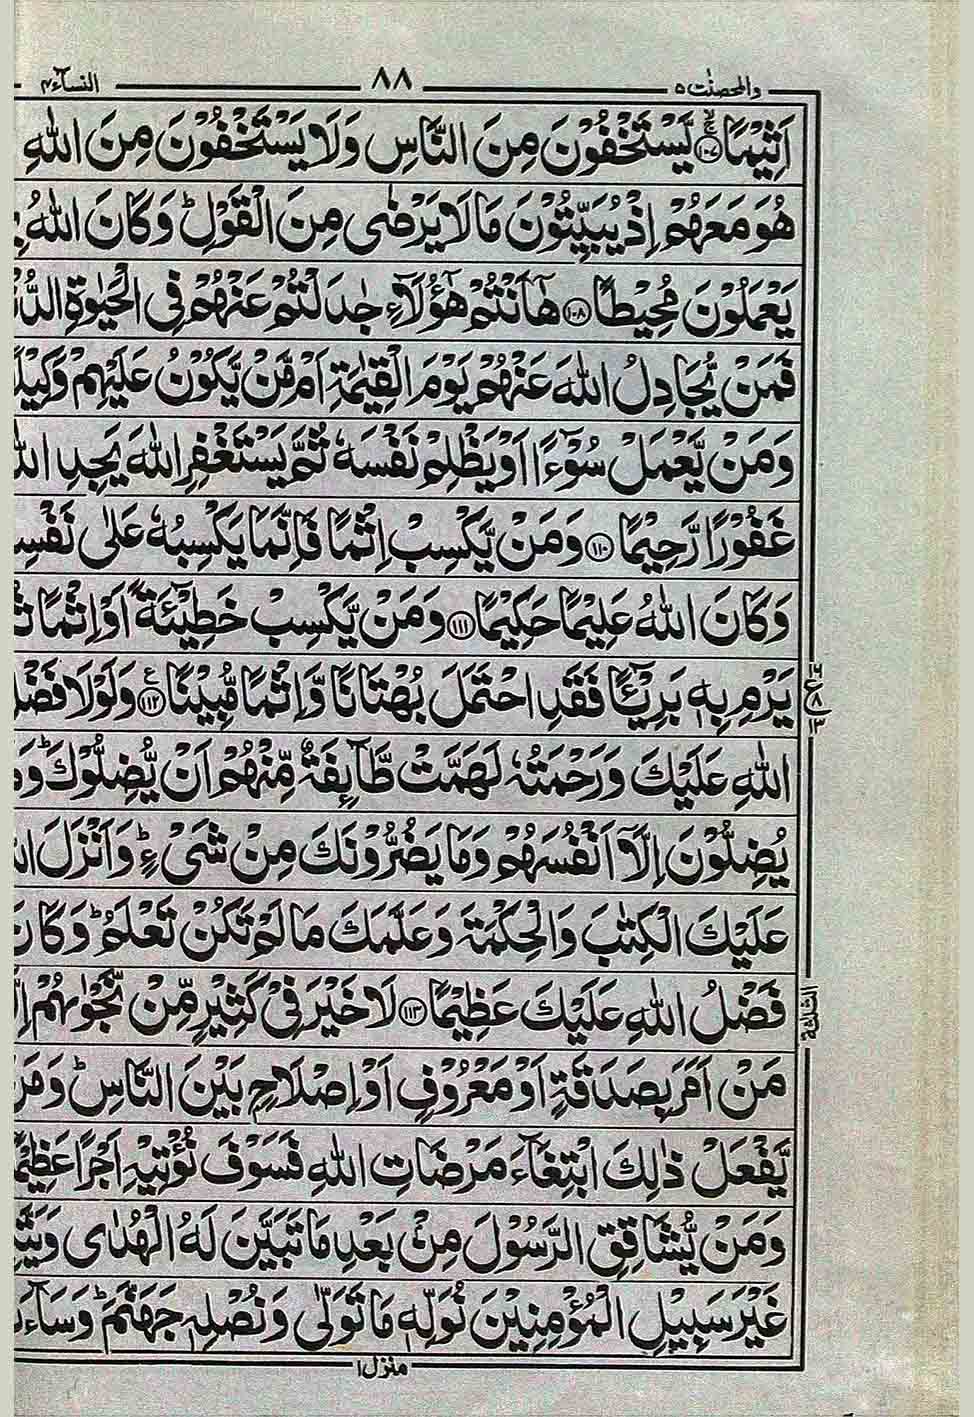 والمحصنت ۵ ۸۸ النساء ۴
اَثِيْمًا ۚۙ ﴿۱۰۷﴾ يَّسْتَخْفُوْنَ مِنَ النَّاسِ وَلَا يَسْتَخْفُوْنَ مِنَ اللّٰهِ
هُوَ مَعَهُمْ اِذْ يُبَيِّتُوْنَ مَا لَا يَرْضٰى مِنَ الْقَوْلِ ؕ وَكَانَ اللّٰهُ
يَعْمَلُوْنَ مُحِيْطًا ﴿۱۰۸﴾ هٰۤاَنْتُمْ هٰۤؤُلَآءِ جٰدَلْتُمْ عَنْهُمْ فِى الْحَيٰوةِ
فَمَنْ يُّجَادِلُ اللّٰهَ عَنْهُمْ يَوْمَ الْقِيٰمَةِ اَمْ مَّنْ يَّكُوْنُ عَلَيْهِمْ
وَمَنْ يَّعْمَلْ سُوْٓءًا اَوْ يَظْلِمْ نَفْسَهٗ ثُمَّ يَسْتَغْفِرِ اللّٰهَ يَجِدِ
غَفُوْرًا رَّحِيْمًا ﴿۱۱۰﴾ وَمَنْ يَّكْسِبْ اِثْمًا فَاِنَّمَا يَكْسِبُهٗ عَلٰى
وَكَانَ اللّٰهُ عَلِيْمًا حَكِيْمًا ﴿۱۱۱﴾ وَمَنْ يَّكْسِبْ خَطِيْٓئَةً اَوْ اِثْمًا
يَرْمِ بِهٖ بَرِيْٓئًا فَقَدِ احْتَمَلَ بُهْتَانًا وَّاِثْمًا مُّبِيْنًا ﴿۱۱۲﴾ ع وَلَوْلَا فَضْلُ
اللّٰهِ عَلَيْكَ وَرَحْمَتُهٗ لَهَمَّتْ طَّآئِفَةٌ مِّنْهُمْ اَنْ يُّضِلُّوْكَ ؕ
يُضِلُّوْنَ اِلَّآ اَنْفُسَهُمْ وَمَا يَضُرُّوْنَكَ مِنْ شَىْءٍ ؕ وَاَنْزَلَ
عَلَيْكَ الْكِتٰبَ وَالْحِكْمَةَ وَعَلَّمَكَ مَا لَمْ تَكُنْ تَعْلَمُ ؕ وَكَانَ
فَضْلُ اللّٰهِ عَلَيْكَ عَظِيْمًا ﴿۱۱۳﴾ لَا خَيْرَ فِىْ كَثِيْرٍ مِّنْ نَّجْوٰىهُمْ
مَنْ اَمَرَ بِصَدَقَةٍ اَوْ مَعْرُوْفٍ اَوْ اِصْلَاحٍۭ بَيْنَ النَّاسِ ؕ وَمَنْ
يَّفْعَلْ ذٰلِكَ ابْتِغَآءَ مَرْضَاتِ اللّٰهِ فَسَوْفَ نُؤْتِيْهِ اَجْرًا عَظِيْمًا
وَمَنْ يُّشَاقِقِ الرَّسُوْلَ مِنْۢ بَعْدِ مَا تَبَيَّنَ لَهُ الْهُدٰى
غَيْرَ سَبِيْلِ الْمُؤْمِنِيْنَ نُوَلِّهٖ مَا تَوَلّٰى وَنُصْلِهٖ جَهَنَّمَ ؕ
۱۶
ع
۸
۱۳
الثلثة
منزل ۱